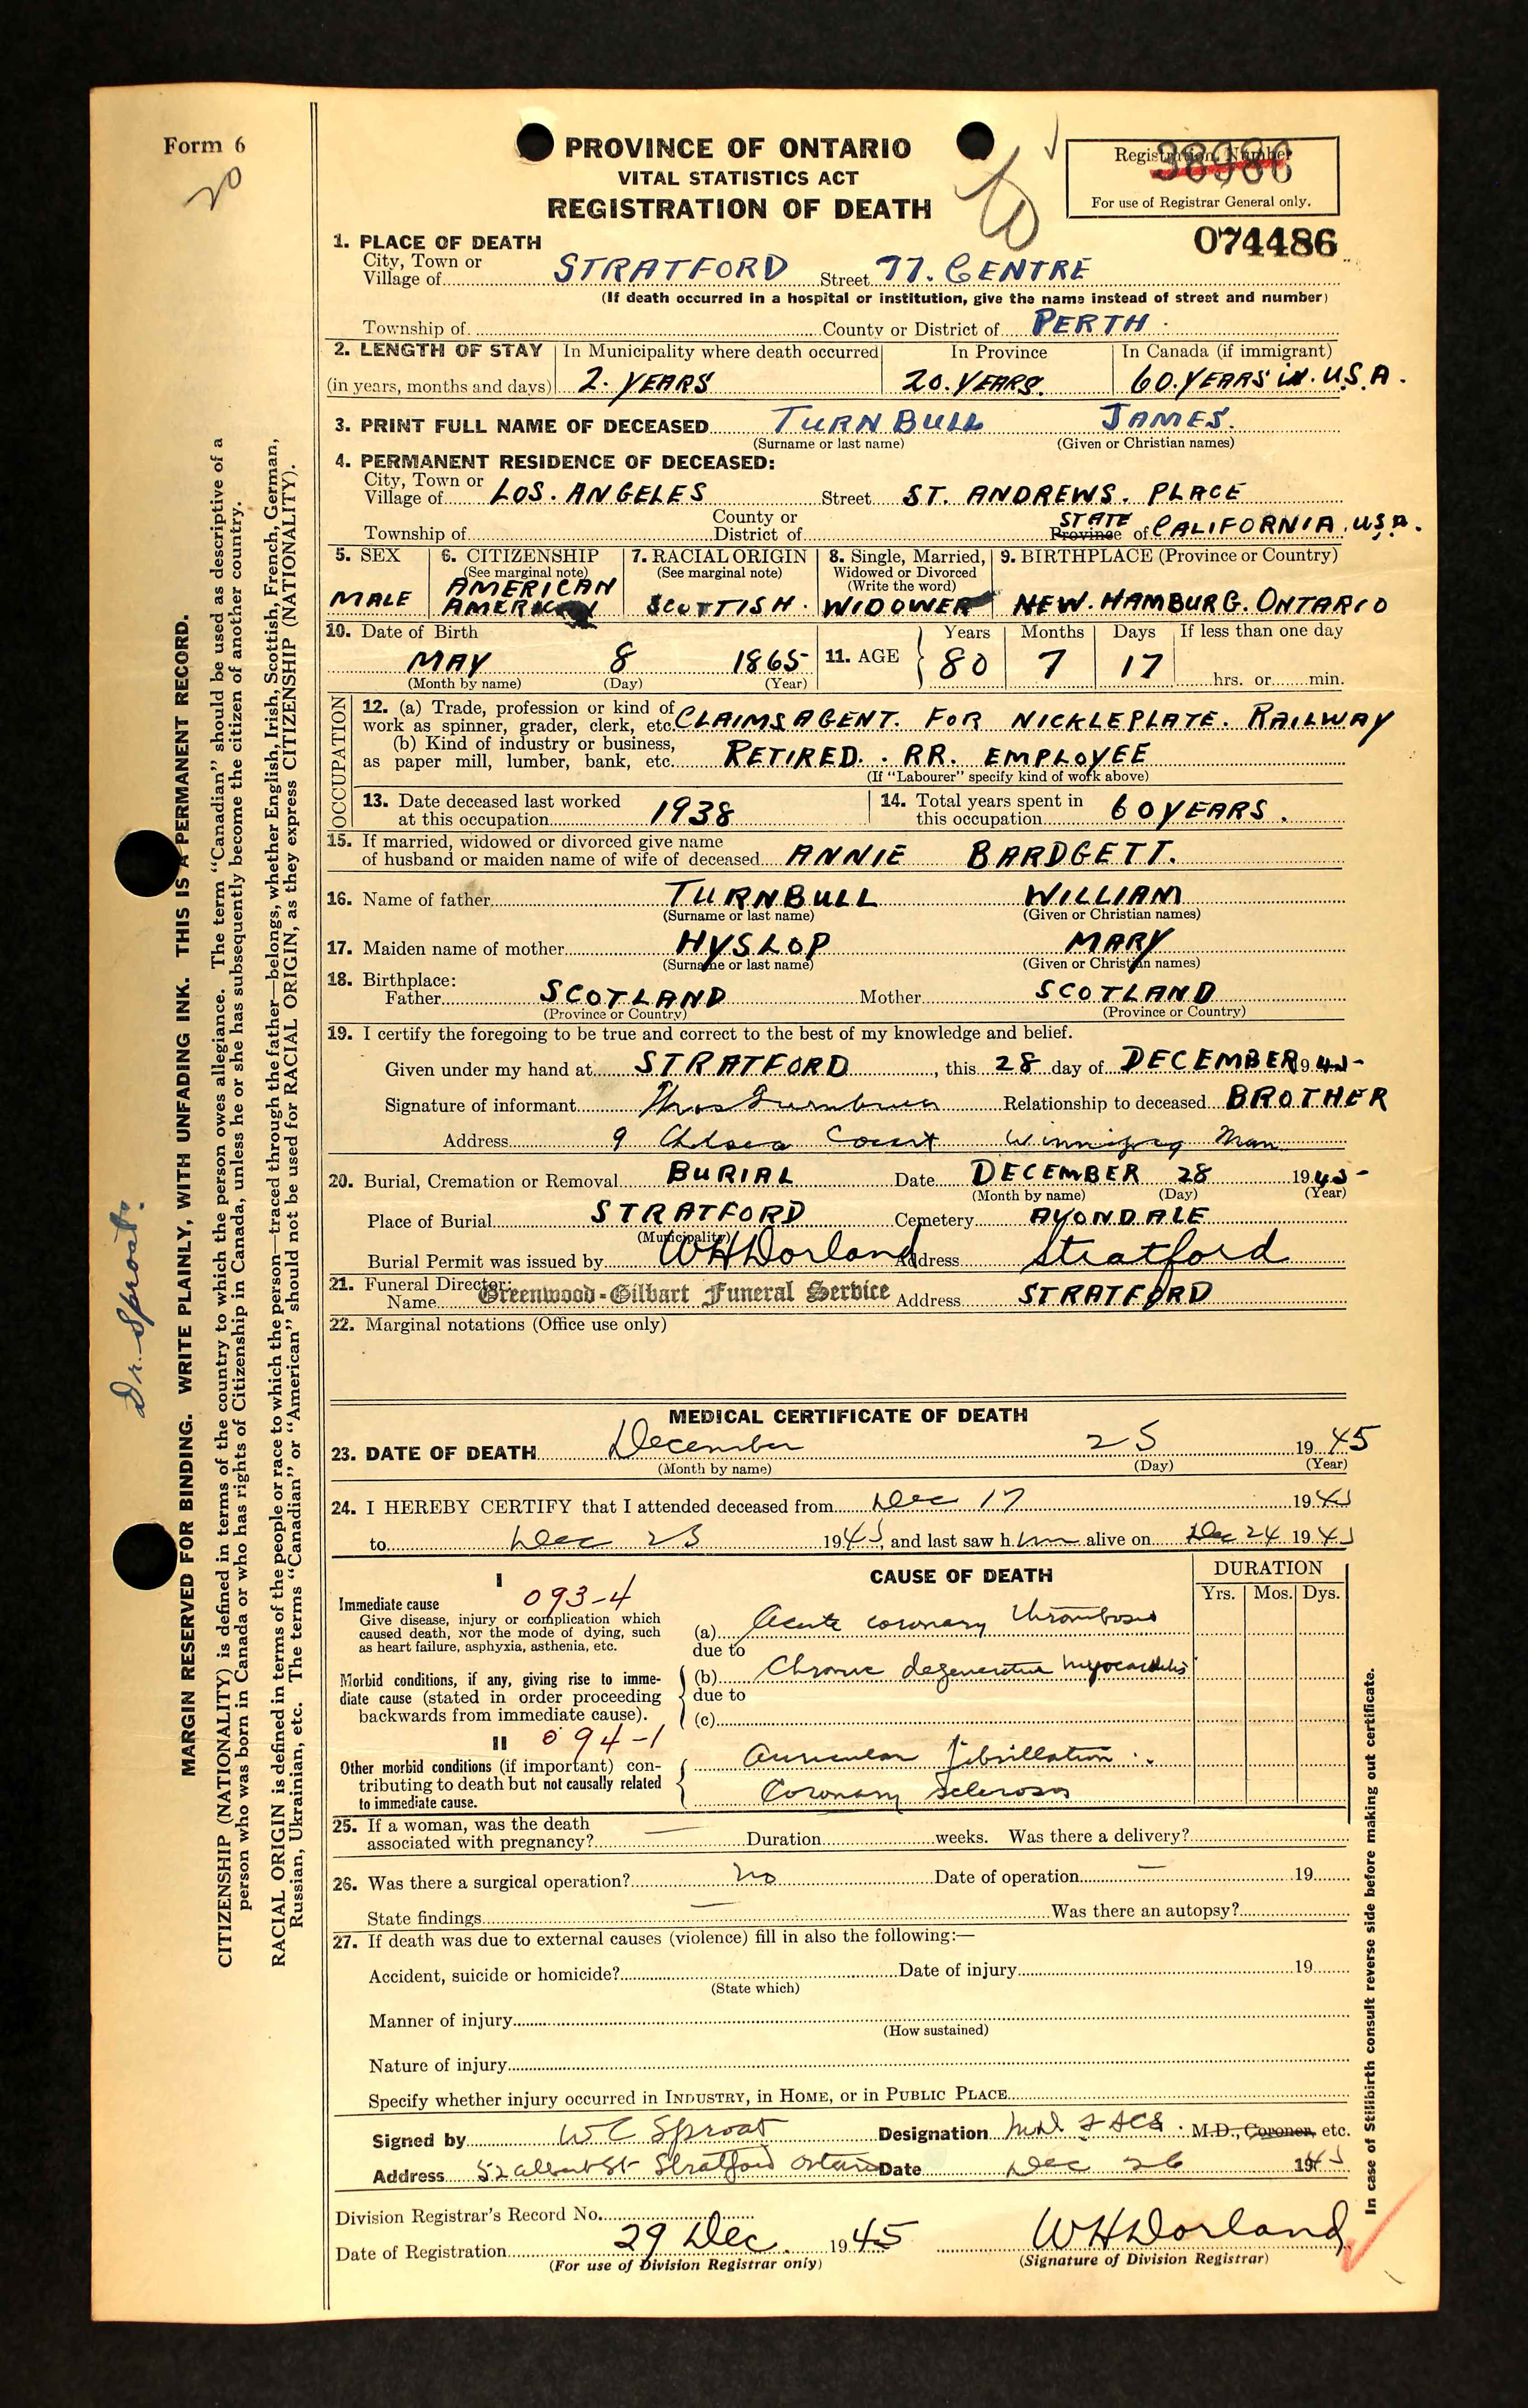 Form 6
20
PROVINCE OF ONTARIO
VITAL STATISTICS ACT
REGISTRATION OF DEATH
Registration Number
38986
For use of Registrar General only.
074486
1. PLACE OF DEATH
City, Town or
Village of STRATFORD Street 77. CENTRE
(If death occurred in a hospital or institution, give the name instead of street and number)
Township of County or District of PERTH
2. LENGTH OF STAY In Municipality where death occurred In Province In Canada (if immigrant)
(in years, months and days) 2. YEARS 20. YEARS. 60. YEARS IN. U.S.A.
3. PRINT FULL NAME OF DECEASED TURNBULL JAMES.
(Surname or last name) (Given or Christian names)
4. PERMANENT RESIDENCE OF DECEASED:
City, Town or
Village of LOS. ANGELES Street ST. ANDREWS. PLACE
County or STATE
Township of District of Province of CALIFORNIA. U.S.A.
5. SEX 6. CITIZENSHIP 7. RACIAL ORIGIN 8. Single, Married, 9. BIRTHPLACE (Province or Country)
(See marginal note) (See marginal note) Widowed or Divorced
(Write the word)
AMERICAN
MALE SCOTTISH. WIDOWER NEW. HAMBURG. ONTARIO
10. Date of Birth 11. AGE Years Months Days If less than one day
MAY 8 1865 80 7 17 hrs. or min.
(Month by name) (Day) (Year)
OCCUPATION
12. (a) Trade, profession or kind of
work as spinner, grader, clerk, etc. CLAIMS AGENT. FOR NICKLEPLATE. RAILWAY
(b) Kind of industry or business,
as paper mill, lumber, bank, etc. RETIRED. . RR. EMPLOYEE
(If "Labourer" specify kind of work above)
13. Date deceased last worked 14. Total years spent in
at this occupation 1938 this occupation 60 YEARS.
15. If married, widowed or divorced give name
of husband or maiden name of wife of deceased ANNIE BARDGETT.
16. Name of father TURNBULL WILLIAM
(Surname or last name) (Given or Christian names)
17. Maiden name of mother HYSLOP MARY
(Surname or last name) (Given or Christian names)
18. Birthplace:
Father SCOTLAND Mother SCOTLAND
(Province or Country) (Province or Country)
19. I certify the foregoing to be true and correct to the best of my knowledge and belief.
Given under my hand at STRATFORD, this 28 day of DECEMBER 1945
Signature of informant Thos Turnbull Relationship to deceased BROTHER
Address 9 Chelsea Court Winnipeg Man
20. Burial, Cremation or Removal BURIAL Date DECEMBER 28 1945
(Month by name) (Day) (Year)
Place of Burial STRATFORD Cemetery AVONDALE
(Municipality)
Burial Permit was issued by WH Dorland Address Stratford
21. Funeral Director:
Name Greenwood-Gilbart Funeral Service Address STRATFORD
22. Marginal notations (Office use only)
MEDICAL CERTIFICATE OF DEATH
23. DATE OF DEATH December 25 1945
(Month by name) (Day) (Year)
24. I HEREBY CERTIFY that I attended deceased from Dec 17 1945
to Dec 25 1945, and last saw him alive on Dec 24 1945
I CAUSE OF DEATH DURATION
Yrs. Mos. Dys.
093-4
Immediate cause
Give disease, injury or complication which
caused death, NOT the mode of dying, such
as heart failure, asphyxia, asthenia, etc.
(a) Acute coronary thrombosis
due to
Morbid conditions, if any, giving rise to imme-
diate cause (stated in order proceeding
backwards from immediate cause).
(b) Chronic degenerative myocarditis
due to
(c)
II 094-1
Other morbid conditions (if important) con-
tributing to death but not causally related
to immediate cause.
Auricular fibrillation
Coronary Sclerosis
25. If a woman, was the death
associated with pregnancy? Duration weeks. Was there a delivery?
26. Was there a surgical operation? no Date of operation 19
State findings Was there an autopsy?
27. If death was due to external causes (violence) fill in also the following:—
Accident, suicide or homicide? Date of injury 19
(State which)
Manner of injury
(How sustained)
Nature of injury
Specify whether injury occurred in INDUSTRY, in HOME, or in PUBLIC PLACE
Signed by WC Sproat Designation M.D., Coroner, etc.
Address 52 Albert St Stratford Ontario Date Dec 26 1945
Division Registrar's Record No.
Date of Registration 29 Dec. 1945 WH Dorland
(For use of Division Registrar only) (Signature of Division Registrar)
Dr. Sproat.
MARGIN RESERVED FOR BINDING. WRITE PLAINLY, WITH UNFADING INK. THIS IS A PERMANENT RECORD.
CITIZENSHIP (NATIONALITY) is defined in terms of the country to which the person owes allegiance. The term "Canadian" should be used as descriptive of a
person who was born in Canada or who has rights of Citizenship in Canada, unless he or she has subsequently become the citizen of another country.
RACIAL ORIGIN is defined in terms of the people or race to which the person—traced through the father—belongs, whether English, Irish, Scottish, French, German,
Russian, Ukrainian, etc. The terms "Canadian" or "American" should not be used for RACIAL ORIGIN, as they express CITIZENSHIP (NATIONALITY).
In case of Stillbirth consult reverse side before making out certificate.